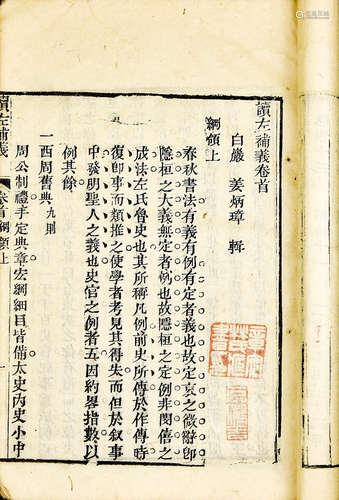 讀左補義卷首
白巖 姜炳璋 輯
綱領上
春秋書法有義有例有定者義也故定哀之微辭卽
隱桓之大義無定者例也故隱桓之定例非閔僖之
成法左氏魯史也其所稱凡例前史所傳於作傳時
復卽事而類推之使學者考見其得失而但於叙事
中發明聖人之義也史官之例者五因約舉指數以
例其餘
一西周舊典九則
周公制禮手定典章宏綱細目皆備太史內史小中
讀左補義
卷首綱領上
一